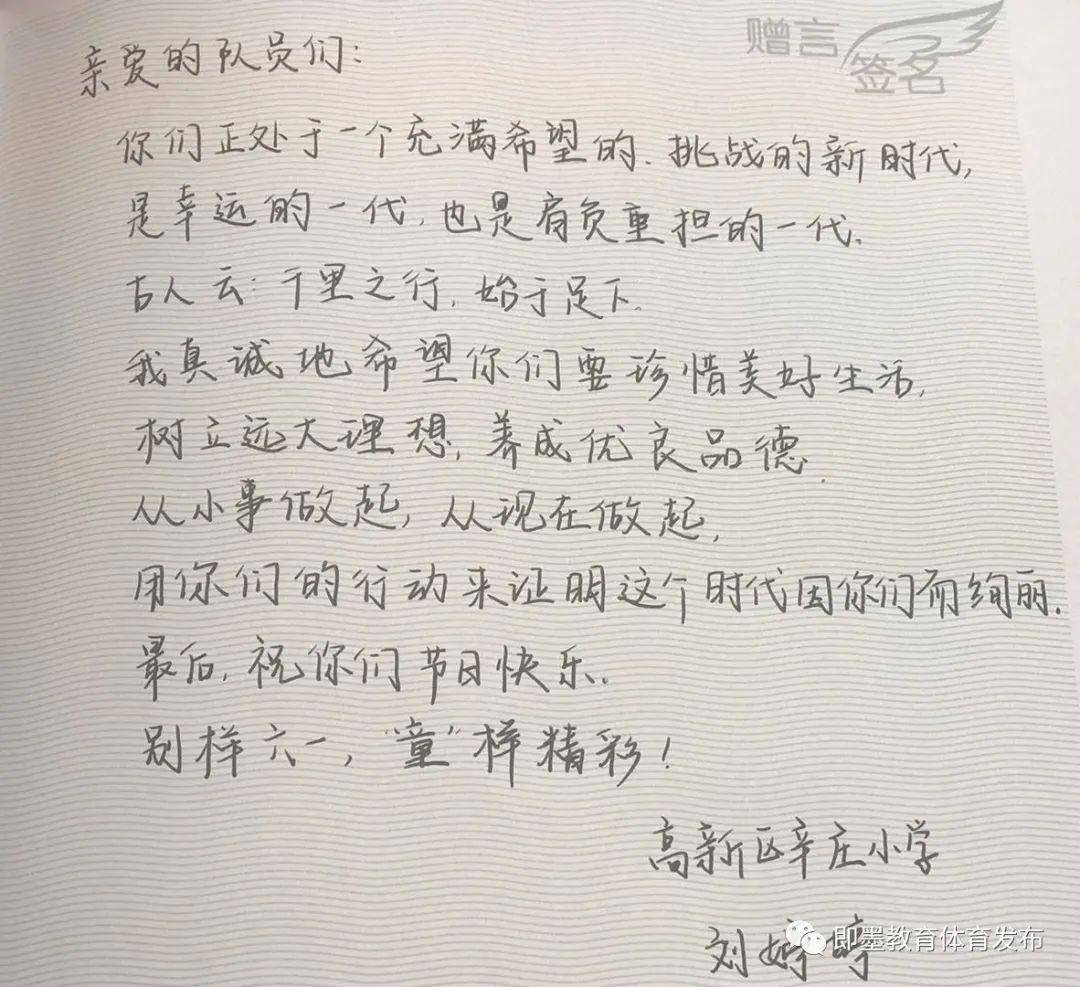 赠言
签名
亲爱的队员们:
你们正处于一个充满希望的、挑战的新时代,
是幸运的一代,也是肩负重担的一代。
古人云:千里之行,始于足下。
我真诚地希望你们要珍惜美好生活,
树立远大理想,养成优良品德.
从小事做起,从现在做起,
用你们的行动来证明这个时代因你们而绚丽.
最后,祝你们节日快乐.
别样六一,“童”样精彩!
高新区辛庄小学
刘婷婷
即墨教育体育发布